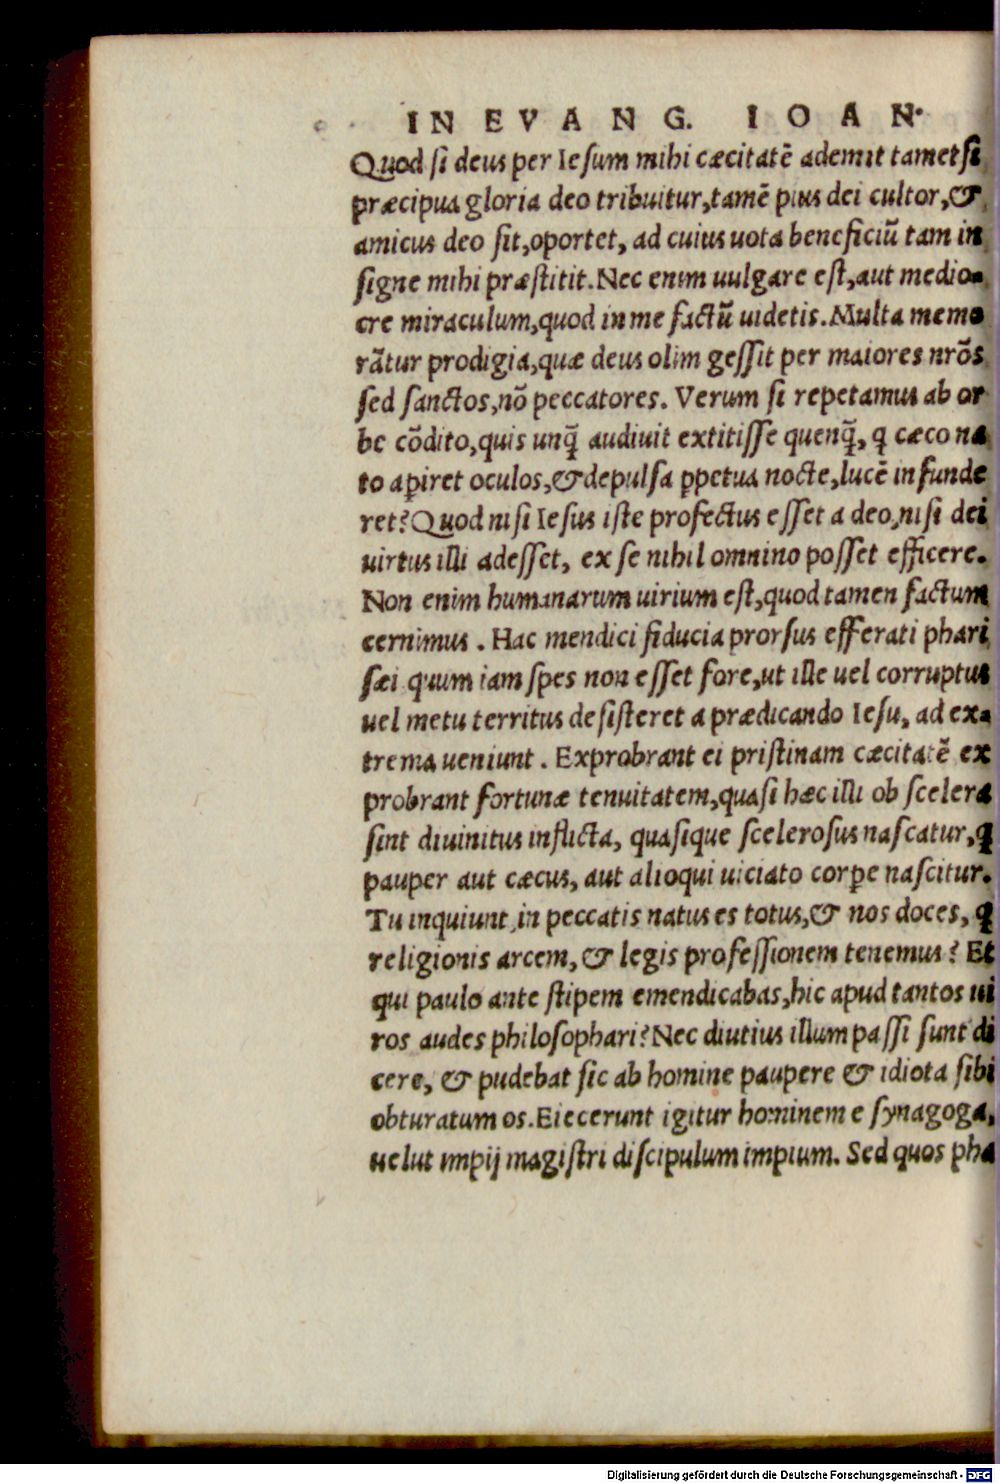 IN EVANG. IOAN.
Quod si deus per Iesum mihi cæcitatē ademit tametsi
præcipua gloria deo tribuitur, tamē pius dei cultor, &
amicus deo sit, oportet, ad cuius uota beneficiū tam in
signe mihi præstitit. Nec enim uulgare est, aut medio-
cre miraculum, quod in me factū uidetis. Multa memo
rātur prodigia, quæ deus olim gessit per maiores nrōs
sed sanctos, nō peccatores. Verum si repetamus ab or
be cōdito, quis unq̄ audiuit extitisse quenq̄, q cæco na
to apiret oculos, & depulsa ꝑpetua nocte, lucē infunde
ret? Quod nisi Iesus iste profectus esset a deo, nisi dei
uirtus illi adesset, ex se nihil omnino posset efficere.
Non enim humanarum uirium est, quod tamen factum
cernimus. Hac mendici fiducia prorsus efferati phari
sæi quum iam spes non esset fore, ut ille uel corruptus
uel metu territus desisteret a prædicando Iesu, ad ex-
trema ueniunt. Exprobrant ei pristinam cæcitatē ex
probrant fortunæ tenuitatem, quasi hæc illi ob scelera
sint diuinitus inflicta, quasique scelerosus nascatur, q
pauper aut cæcus, aut alioqui uiciato corꝑe nascitur.
Tu inquiunt, in peccatis natus es totus, & nos doces, q
religionis arcem, & legis professionem tenemus? Et
qui paulo ante stipem emendicabas, hic apud tantos ui
ros audes philosophari? Nec diutius illum passi sunt di
cere, & pudebat sic ab homine paupere & idiota sibi
obturatum os. Eiecerunt igitur hominem e synagoga,
uelut impij magistri discipulum impium. Sed quos pha
Digitalisierung gefördert durch die Deutsche Forschungsgemeinschaft - DFG